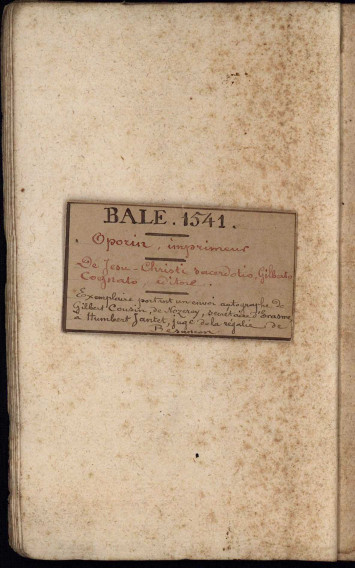 BALE. 1541.
Oporin, imprimeur
De Jesu-Christi sacerdotio, Gilberto
Cognato
Exemplaire portant un envoi autographe de
Gilbert Cousin, de Nozeroy, secrétaire d'Erasme,
a Humbert Jantet, juge de la régalie de
Besançon